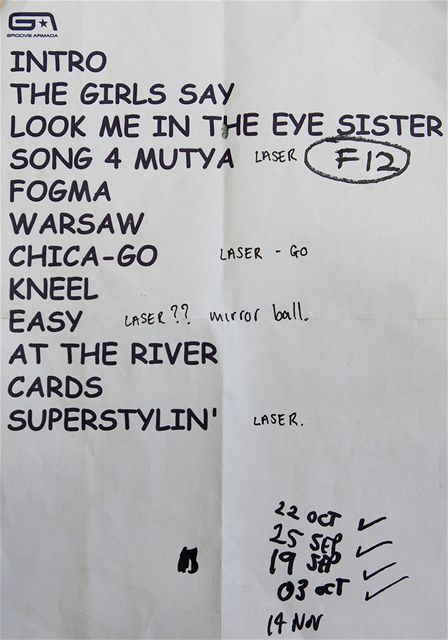 GROOVE ARMADA
INTRO
THE GIRLS SAY
LOOK ME IN THE EYE SISTER
SONG 4 MUTYA LASER F12
FOGMA
WARSAW
CHICA-GO LASER - GO
KNEEL
EASY LASER?? mirror ball.
AT THE RIVER
CARDS
SUPERSTYLIN' LASER.
22 OCT ✓
25 SEP ✓
19 SEP ✓
03 OCT ✓
14 NOV